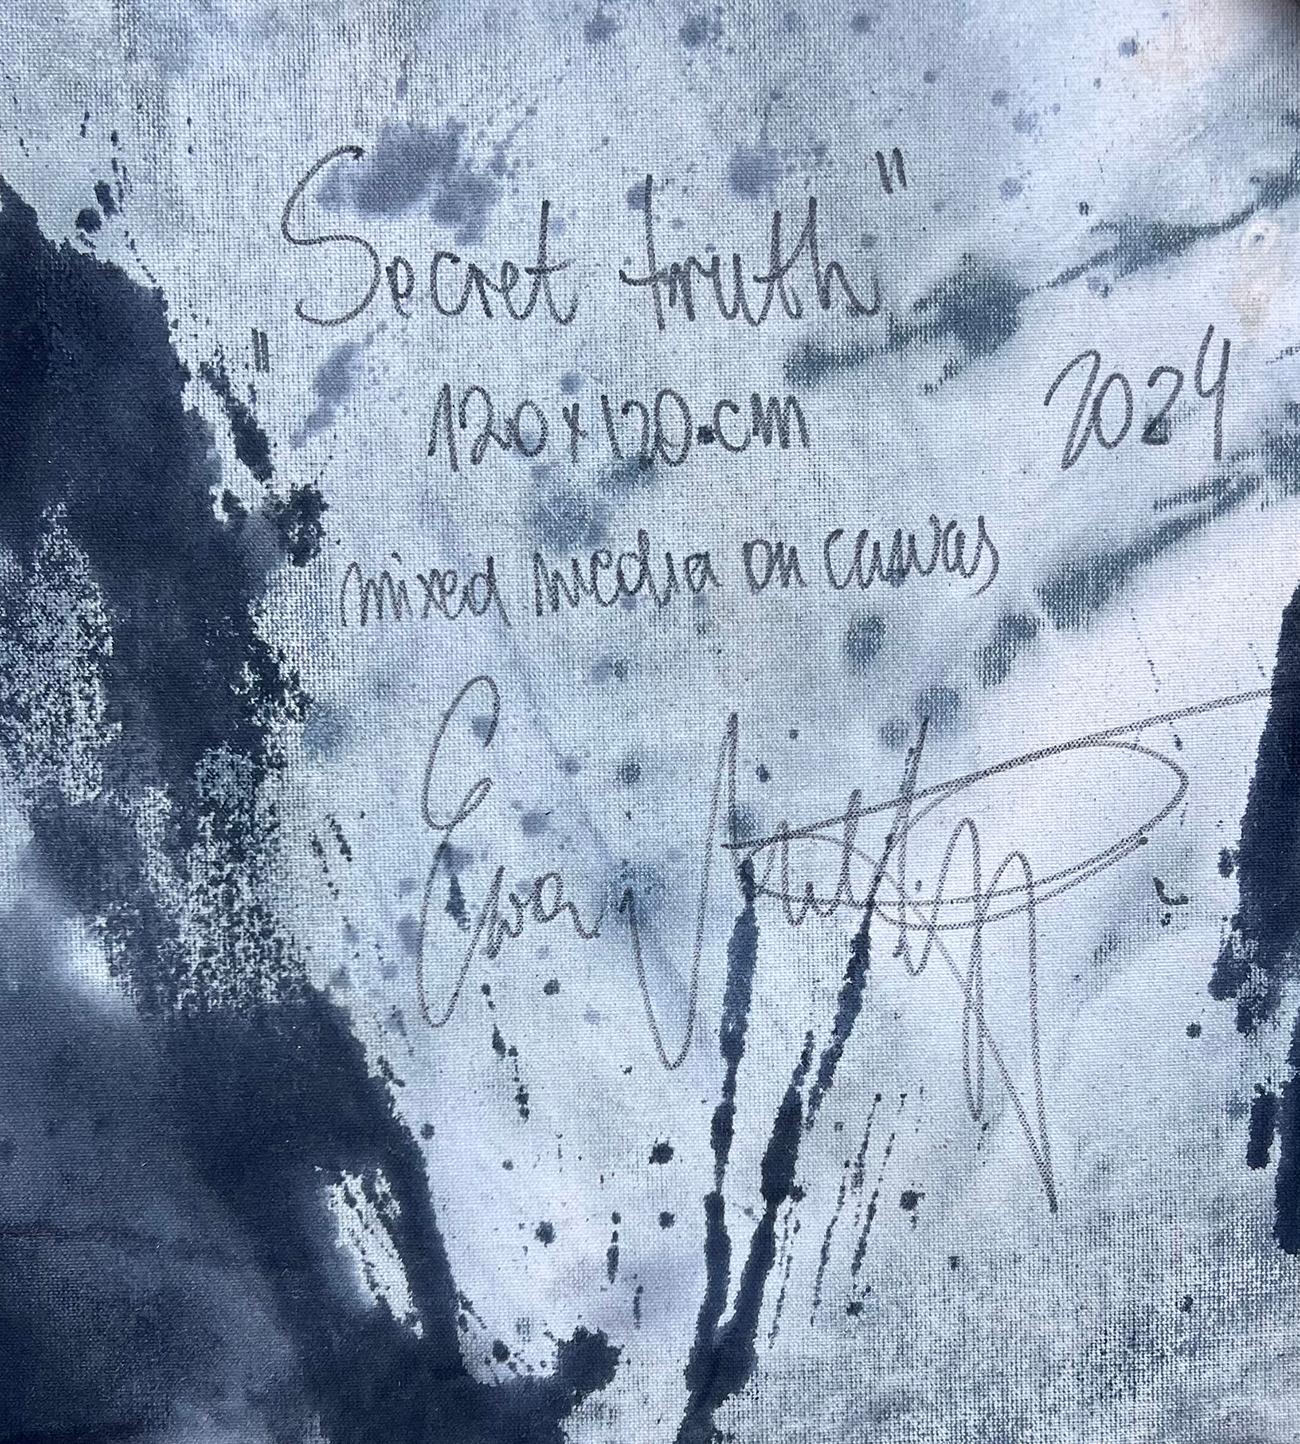 "Secret truth"
120x120.cm 2024
mixed media on canvas
Eva